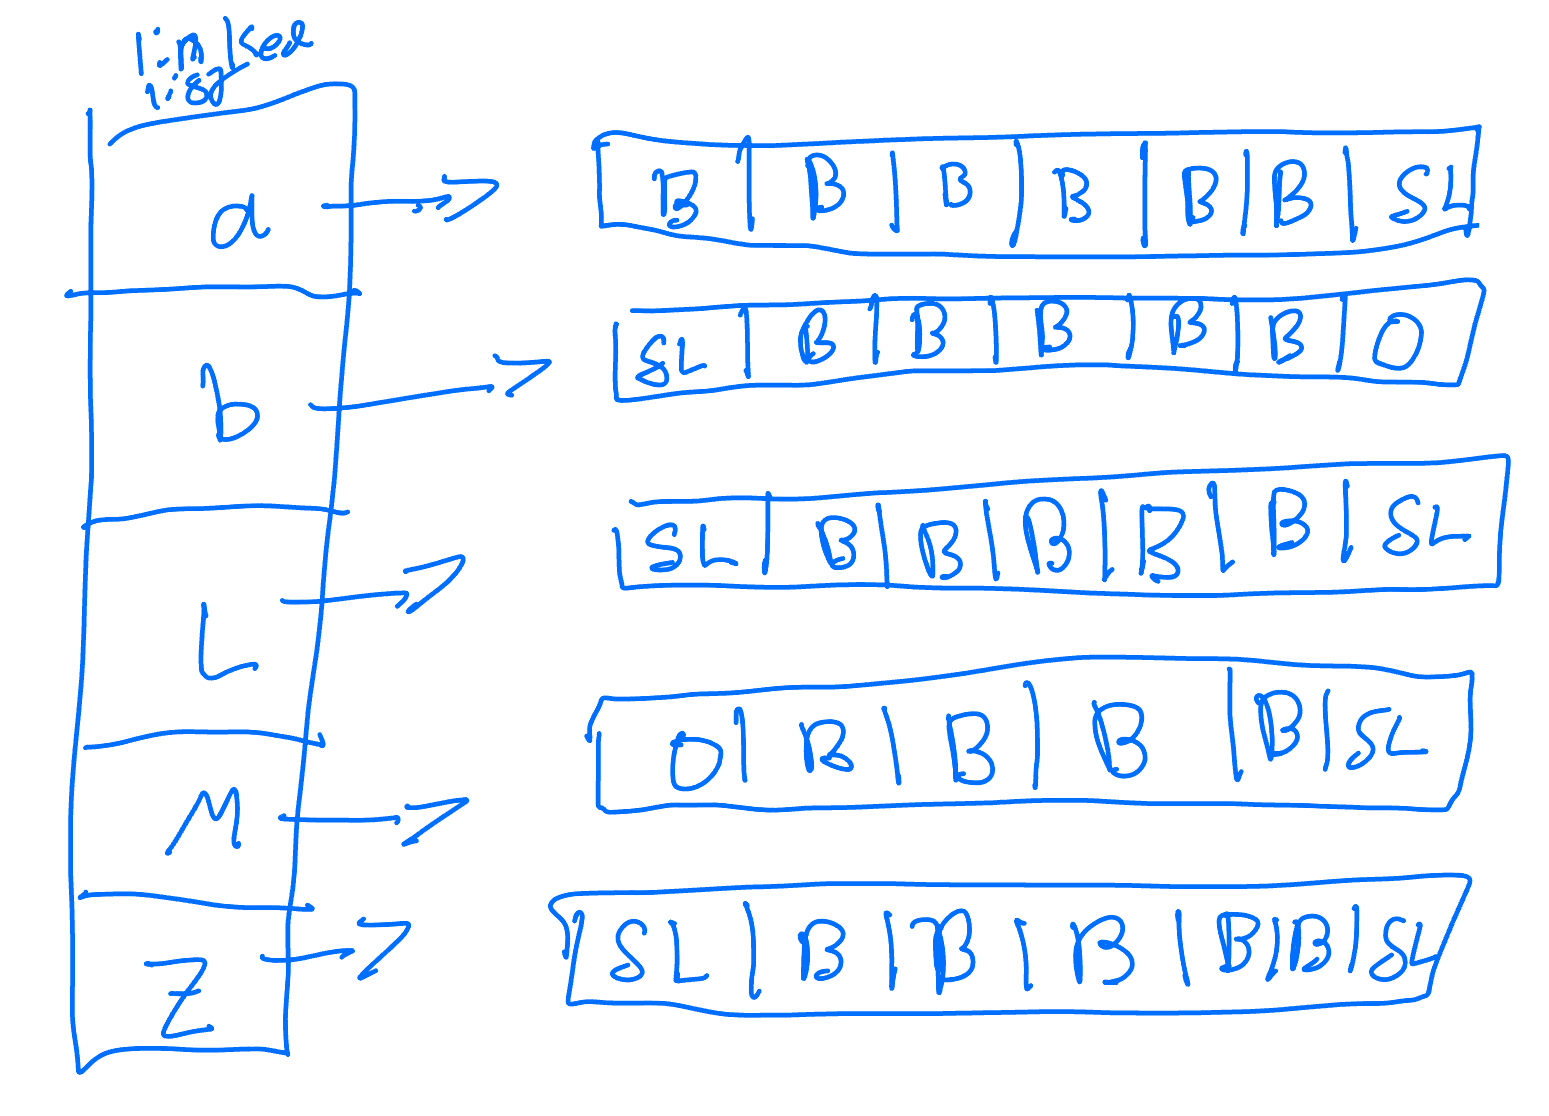 linked
list
a B B B B B B SL
b SL B B B B B O
L SL B B B B B SL
M O B B B B SL
Z SL B B B B B SL